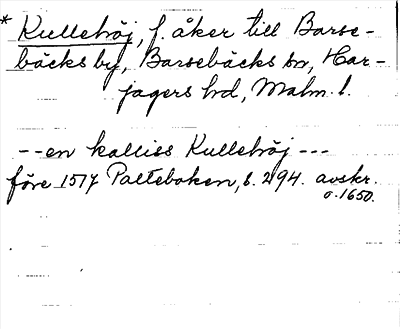 * Kullehöj, f. åker till Barse-
bäcks by, Barsebäcks sn, Har-
jagers hd, Malm. l.
-- en kalliss Kullehöj ---
före 1517 Palteboken, s. 294. avskr.
o. 1650.